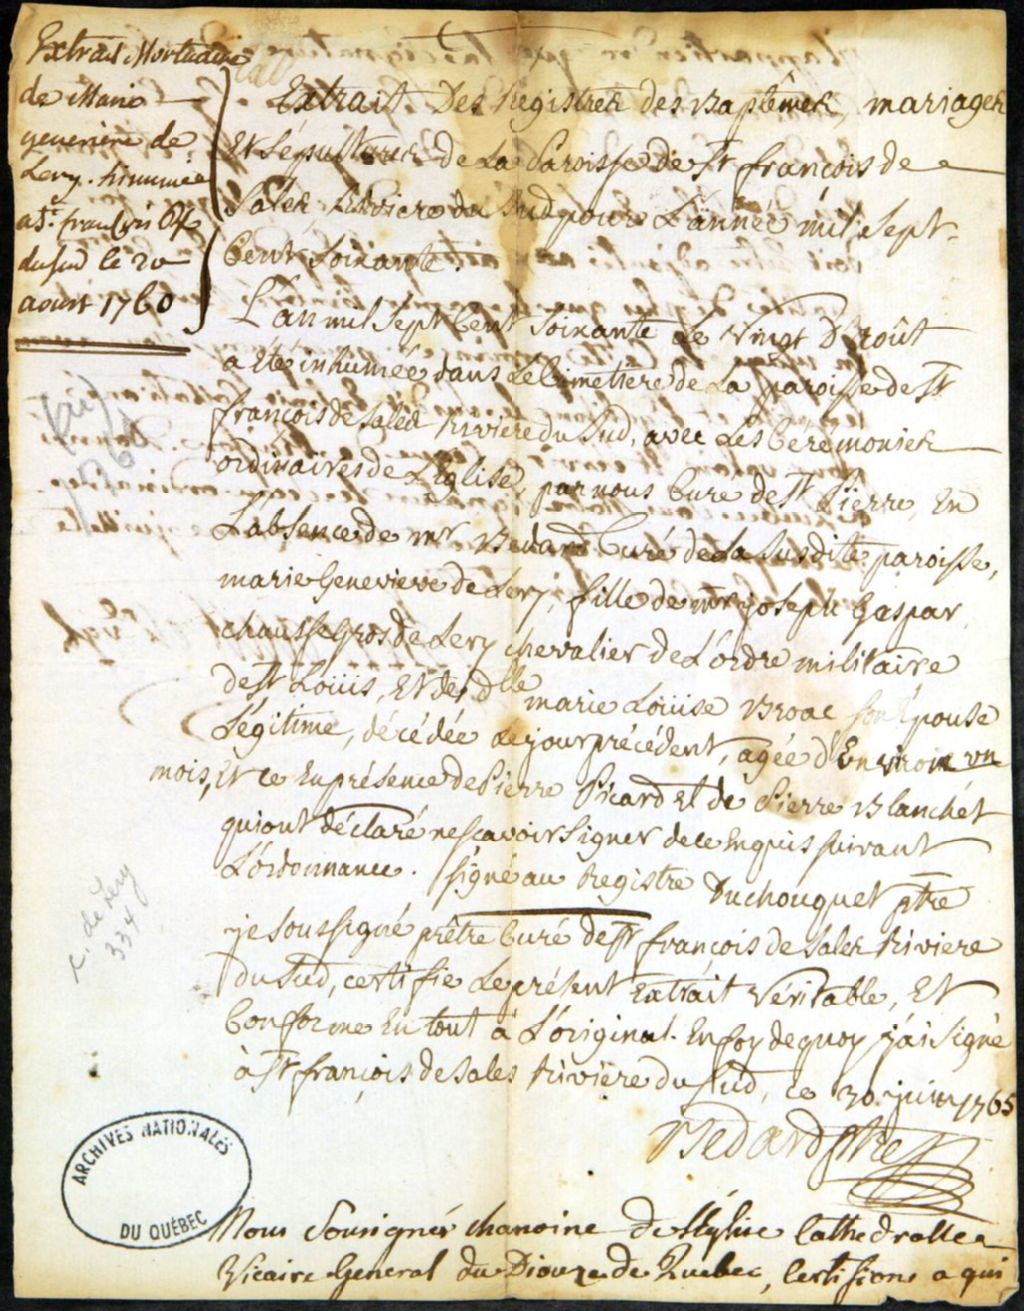 Extrait Mortuaire
de Marie
genevieve de
Lery. hinumée
a St. françois
du sud le 20
aoust 1760
Extrait Des Registres des Baptêmes, mariages
Et Sépultures de La Paroisse de St françois de
Sales, Riviere du Sud pour L'année mil Sept
Cent Soixante.
L'an mil Sept Cent Soixante Le Vingt D'Août
a Eté inhumée dans Le Cimetiere de La paroisse de St
françois de Sales Riviere du Sud, avec Les Cérémonies
ordinaires de L'Eglise, par nous Curé de St Pierre, En
L'absence de mr Bedard Curé de La Susdite paroisse,
marie Genevieve de Lery, fille de mr joseph Gaspar
chaussegros de Lery chevalier de L'ordre militaire
de St Loüis, Et de dlle marie Loüise Broac son Epouse
Légitime, décédée Le jour précédent, agée d'Environ un
mois, Et ce En présence de Pierre Picard Et de Pierre Blanchét
qui ont déclaré ne sçavoir Signer de ce Enquis suivant
L'ordonnance. Signé au Registre Duchouquet ptre
je soussigné prêtre Curé de St françois de Sales Riviere
du Sud, certifie Le présent Extrait Véritable, Et
Conforme En tout à L'original. En foy de quoy j'ai Signé
à St françois de Sales Riviere du Sud, ce 30 juin 1765
Bedard ptre
Nous Sousignés chanoine de l'Eglise Cathedralle
Vicaire General du Dioceze de Quebec, Certifions a qui
c. de Lery
334
ARCHIVES NATIONALES
DU QUÉBEC